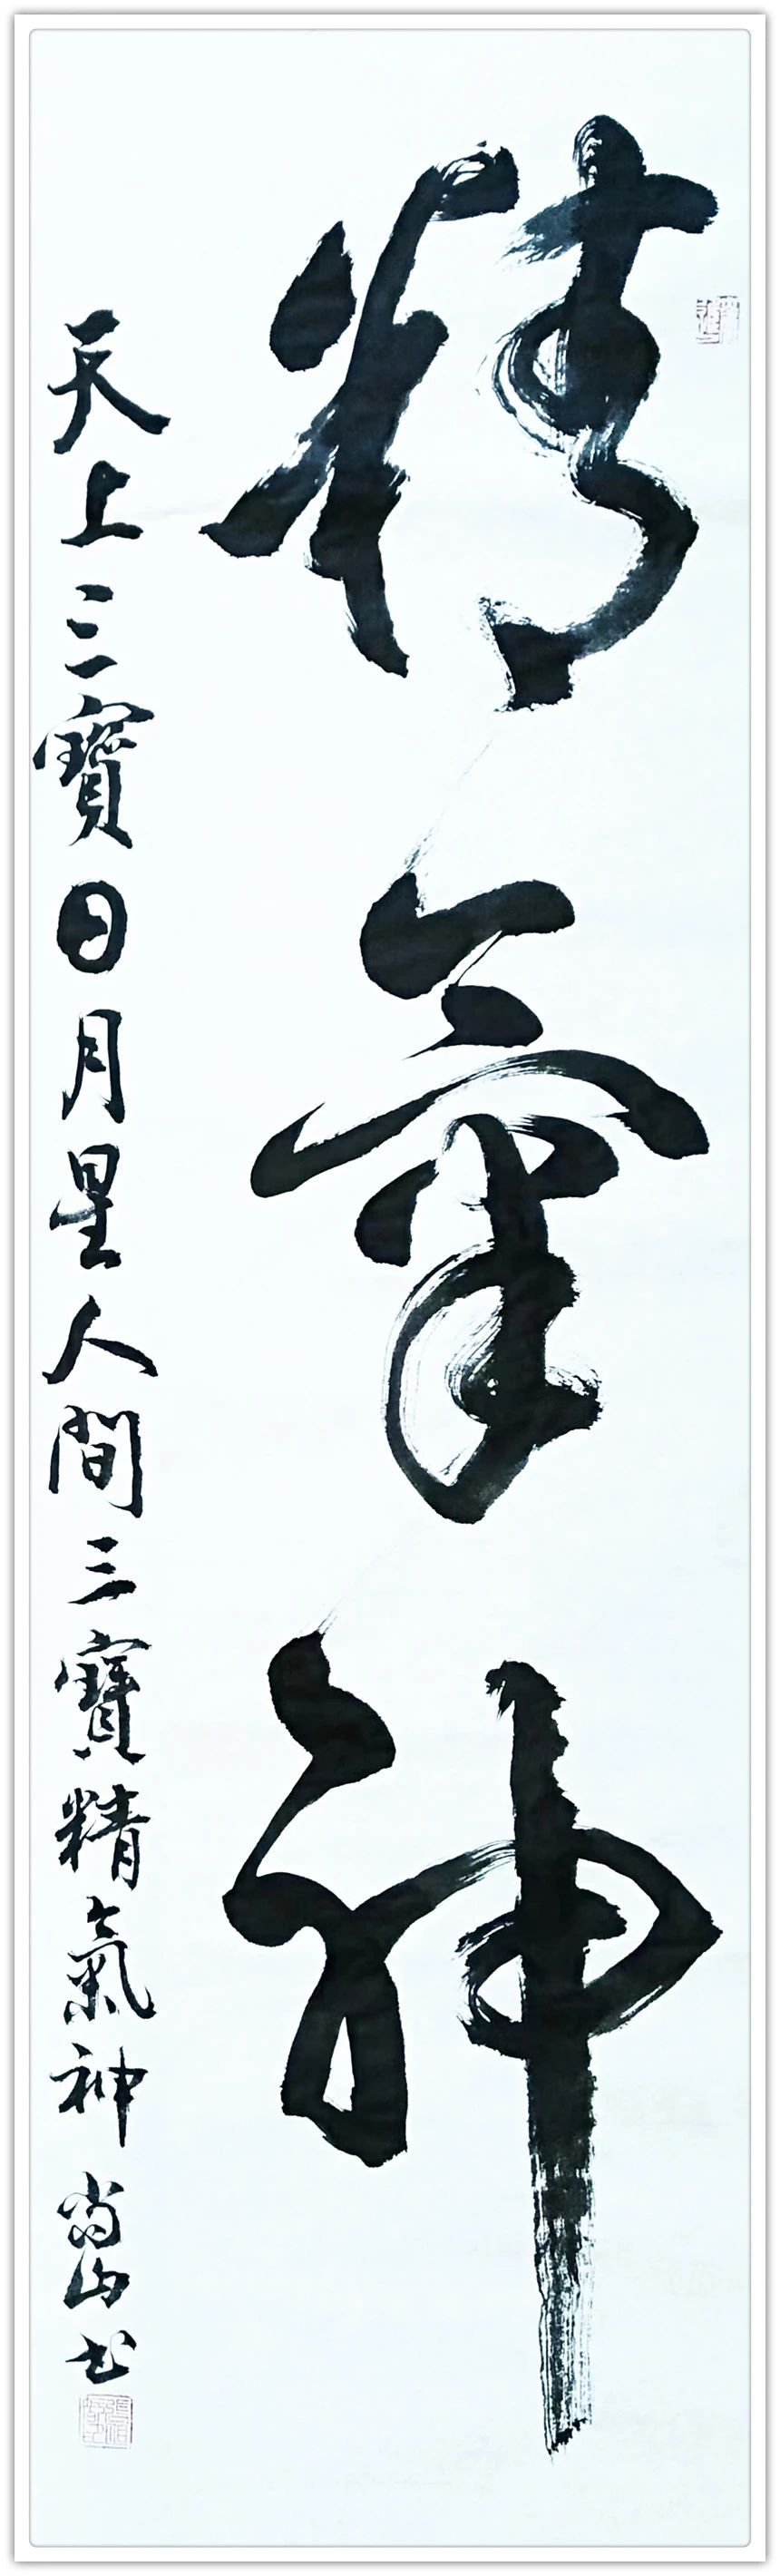 精氣神
天上三寶日月星人間三寶精氣神 尚山書